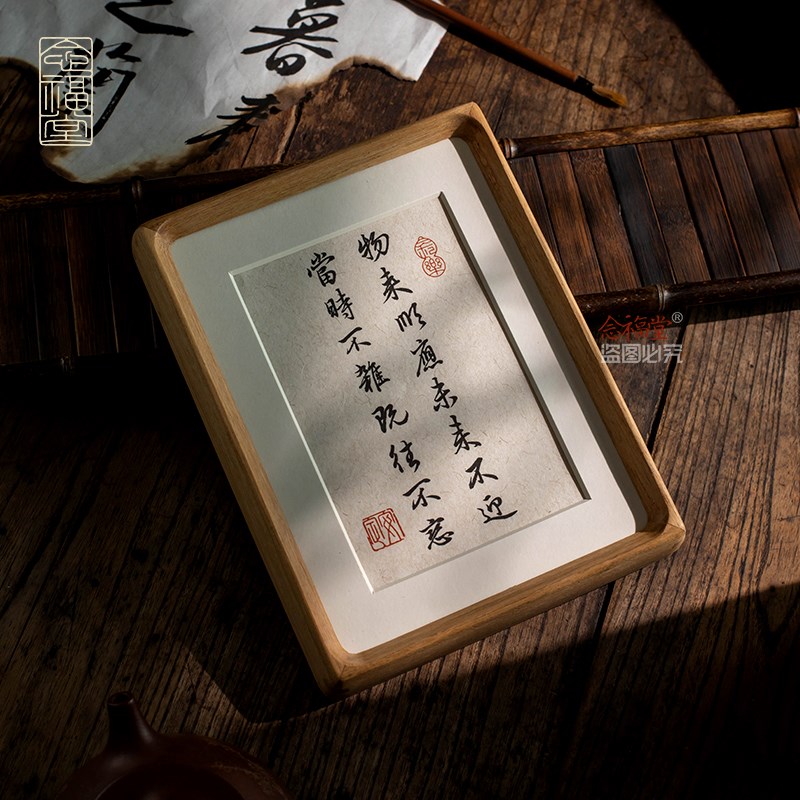 念福堂
物来顺應未来不迎
當時不雜既往不恋
念福堂®
盗图必究